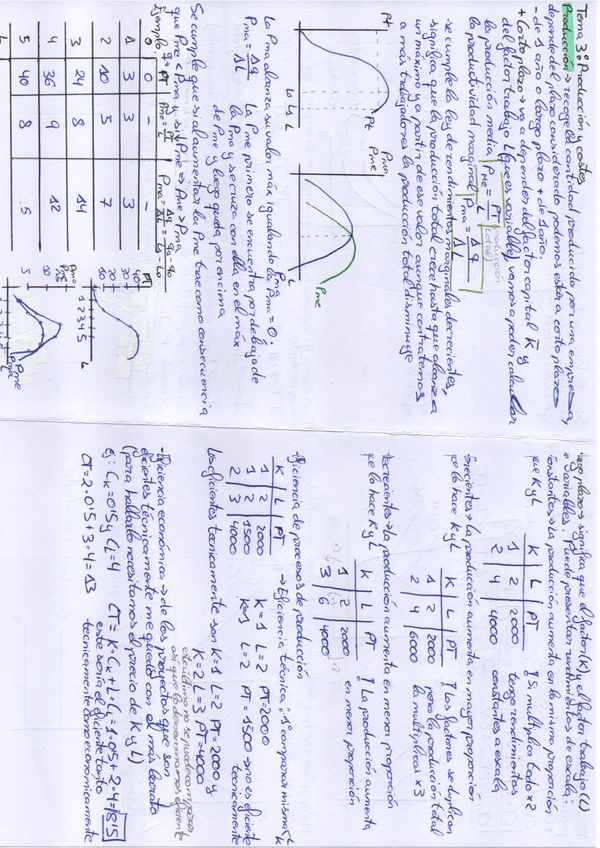 Tema 3: Producción y costes
Producción → recoge la cantidad producida por una empresa,
depende del plazo considerado podemos estar a corto plazo
- de 1 año o largo plazo + de 1 año.
+ Corto plazo → va a depender del factor capital K y
del factor trabajo L (que es variable), vamos a poder calcular
la producción media Pme = PT / L (producción total)
la productividad marginal Pma = Δq / ΔL
se cumple la ley de rendimientos marginales decrecientes,
significa que la producción total crece hasta que alcanza
un máximo y a partir de ese valor aunque contratemos
a más trabajadores la producción total disminuye
Pt
Pt
L
Pma
Pme
Pme
L
Pma = 0;
La Pma alcanza su valor máx igualando la
Pma = Δq / ΔL
La Pme primero se encuentra por debajo de
la Pma y se cruza con ella en el máx
de Pme y luego queda por encima
Se cumple que si al aumentar L la Pme trae como consecuencia
que Pme < Pma y si ↓ Pme ⇒ Pme > Pma
Ejemplo:
L | PT | Pme = PT/L | Pma = Δq/ΔL
0 | 0 | - | -
1 | 3 | 3 | 3
2 | 10 | 5 | 7
3 | 24 | 8 | 14
4 | 36 | 9 | 12
5 | 40 | 8 | 5
PT
40
30
20
10
L
Pma
Pme
15
10
5
1 2 3 4 5
L
Pme
Pma
largo plazo → significa que el factor (K) y el factor trabajo (L)
variables. Puede presentar rendimientos de escala:
constantes → la producción aumenta en la misma proporción
que K y L
K | L | PT
1 | 2 | 2000
2 | 4 | 4000
Si multiplico todo x2
tengo rendimientos
constantes a escala
crecientes → la producción aumenta en mayor proporción
que lo hace K y L
K | L | PT
1 | 2 | 2000
2 | 4 | 6000
Los factores se duplican
pero la producción total
la multiplica x3
decrecientes → la producción aumenta en menor proporción
que lo hace K y L
K | L | PT
1 | 2 | 2000
3 | 6 | 4000
La producción aumenta
en menor proporción
Eficiencia de procesos de producción
→ Eficiencia técnica: 1º comparar misma K
K | L | PT
1 | 2 | 2000
1 | 2 | 1500
2 | 3 | 4000
K=1 L=2 PT=2000
K=1 L=2 PT=1500 → no es eficiente
tecnicamente
Los eficientes tecnicamente son K=1 L=2 PT=2000 y
K=2 L=3 PT=4000
- Eficiencia económica → de los proyectos que son
eficientes técnicamente me quedo con el más barato
(para hallarlo necesitamos el precio de K y L)
ej: CK=0'5 y CL=4 CT = K·CK + L·CL = 1·0'5 + 2·4 = 8'5
CT = 2·0'5 + 3·4 = 13
este sería el eficiente tanto
tecnicamente como económicamente